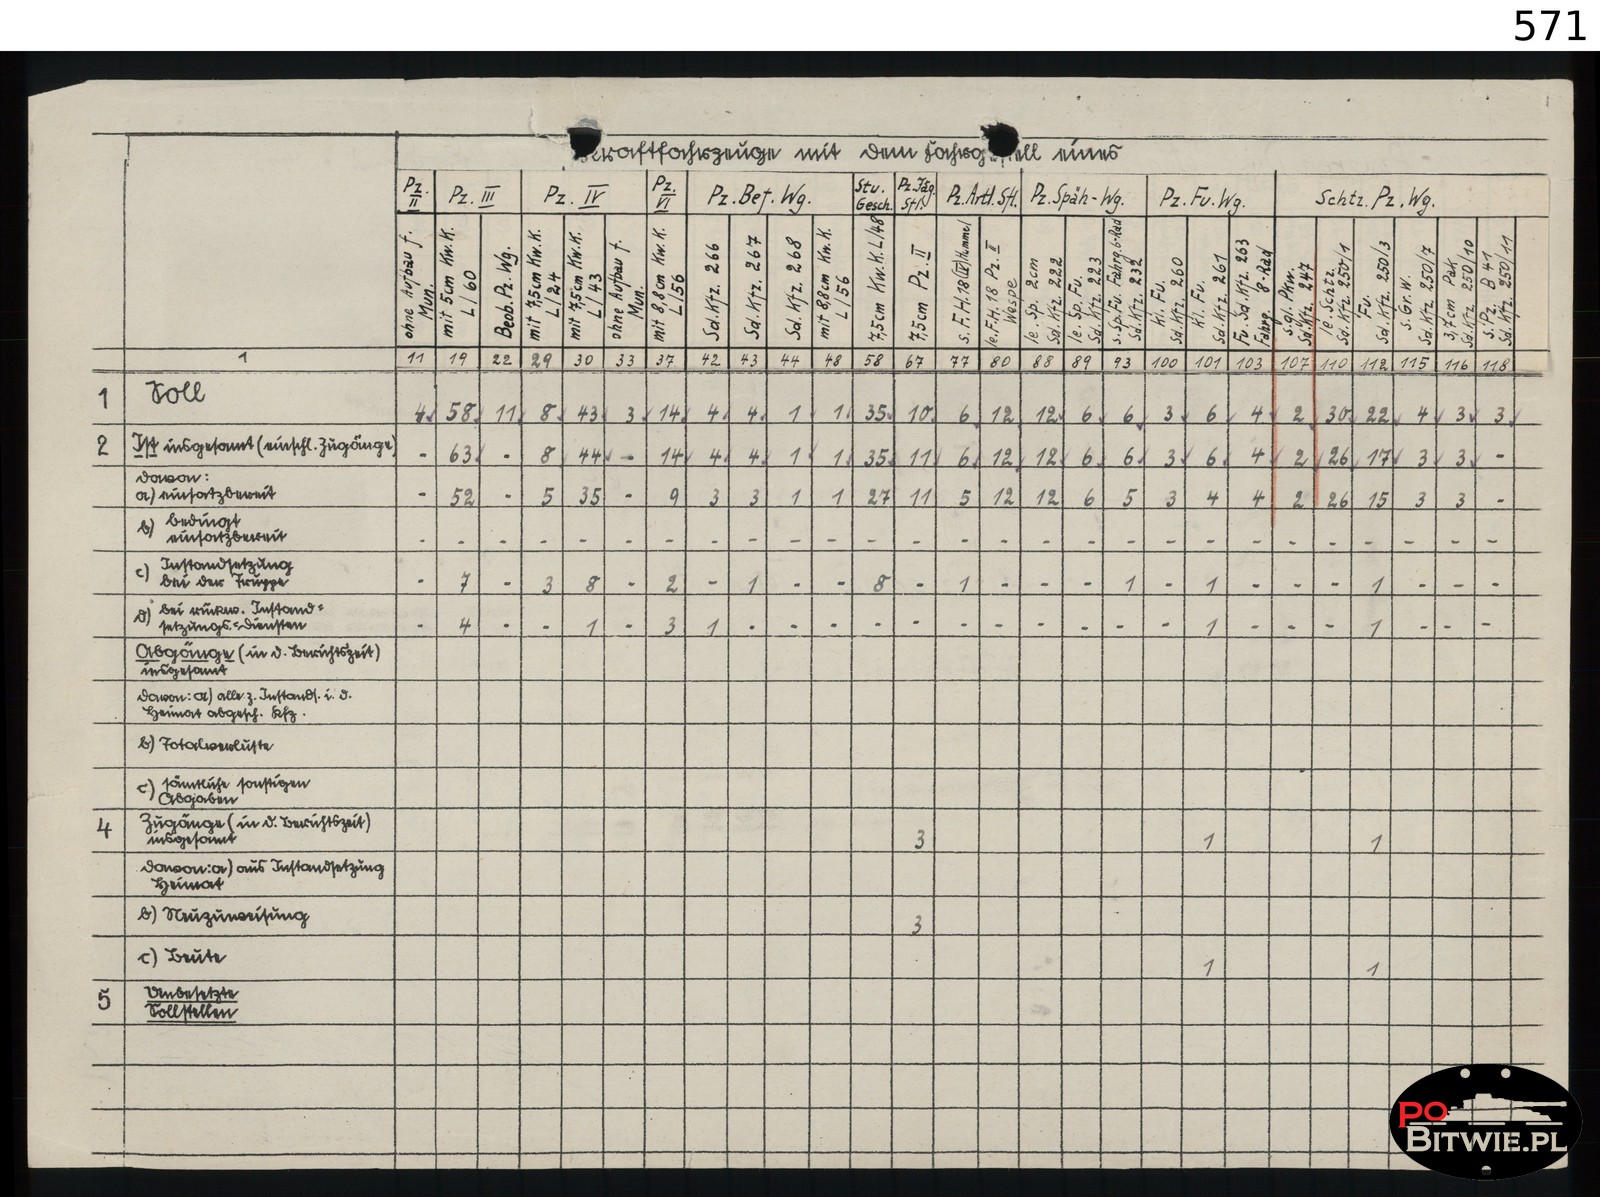 571
Kraftfahrzeuge mit dem Fahrgestell eines
Pz. II | Pz. III | Pz. IV | Pz. VI | Pz. Bef. Wg. | Stu. Gesch. | Pz. Jäg. Sfl. | Pz. Artl. Sfl. | Pz. Späh-Wg. | Pz. Fu. Wg. | Schtz. Pz. Wg.
ohne Aufbau f. Mun. | mit 5cm Kw.K. L/60 | Beob. Pz. Wg. | mit 7,5cm Kw.K. L/24 | mit 7,5cm Kw.K. L/43 | ohne Aufbau f. Mun. | mit 8,8cm Kw.K. L/56 | Sd. Kfz. 266 | Sd. Kfz. 267 | Sd. Kfz. 268 | mit 8,8cm Kw.K. L/56 | 7,5cm Kw.K. L/48 | 7,5cm Pz. II | s.F.H.18 (IV) Hummel | le.F.H.18 Pz. II Wespe | le. Sp. 2cm Sd. Kfz. 222 | le. Sp. Fu. Sd. Kfz. 223 | s. Sp. Fu. Fahrg. 6-Rad Sd. Kfz. 232 | Kl. Fu. Sd. Kfz. 260 | Kl. Fu. Sd. Kfz. 261 | Fu. Sd. Kfz. 263 Fahrg. 8-Rad | s. gl. Pkw. Sd. Kfz. 247 | le. Schtz. Sd. Kfz. 250/1 | Fu. Sd. Kfz. 250/3 | s. Gr. W. Sd. Kfz. 250/7 | 3,7cm Pak Sd. Kfz. 250/10 | s. Pz. B 41 Sd. Kfz. 250/11
1 | 11 | 19 | 22 | 29 | 30 | 33 | 37 | 42 | 43 | 44 | 48 | 58 | 67 | 77 | 80 | 88 | 89 | 93 | 100 | 101 | 103 | 107 | 110 | 112 | 115 | 116 | 118
1 Soll 4 58 11 8 43 3 14 4 4 1 1 35 10 6 12 12 6 6 3 6 4 2 30 22 4 3 3
2 Ist insgesamt (einschl. Zugänge) - 63 - 8 44 - 14 4 4 1 1 35 11 6 12 12 6 6 3 6 4 2 26 17 3 3 -
davon:
a) einsatzbereit - 52 - 5 35 - 9 3 3 1 1 27 11 5 12 12 6 5 3 4 4 2 26 15 3 3 -
b) bedingt
einsatzbereit - - - - - - - - - - - - - - - - - - - - - - - - - - -
c) Instandsetzung
bei der Truppe - 7 - 3 8 - 2 - 1 - - 8 - 1 - - - 1 - 1 - - - 1 - - -
d) bei rückw. Instand=
setzungs=Diensten - 4 - - 1 - 3 1 - - - - - - - - - - - 1 - - - 1 - - -
Abgänge (in d. Berichtszeit)
insgesamt
davon: a) alle z. Instands. i. d.
Heimat abgesch. Kfz.
b) Totalverluste
c) sämtliche sonstigen
Abgaben
4 Zugänge (in d. Berichtszeit)
insgesamt 3 1 1
davon: a) aus Instandsetzung
Heimat
b) Neuzuweisung 3
c) Beute 1 1
5 Unbesetzte
Sollstellen
PO
BITWIE.PL